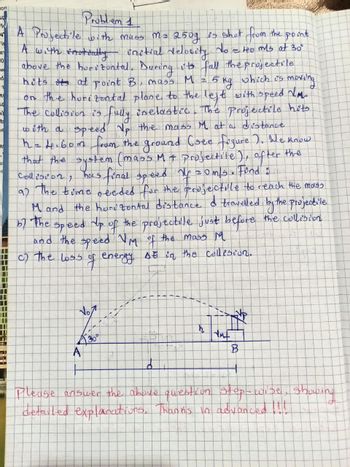 Problem 1
A Projectile with mass m = 250g is shot from the point
A with initial velocity v₀ = 40 m/s at 30°
above the horizontal. During its fall the projectile
hits at point B, mass M = 5 kg which is moving
on the horizontal plane to the left with speed VM.
The collision is fully inelastic. The projectile hits
with a speed Vp the mass M at a distance
h = 4.60m from the ground (see figure). We know
that the system (mass M + projectile), after the
collision, has final speed Vf = 0 m/s. Find:
a) The time needed for the projectile to reach the mass
M and the horizontal distance d travelled by the projectile
b) The speed Vp of the projectile just before the collision
and the speed VM of the mass M
c) The loss of energy ΔE in the collision.
V₀
Vp
h
VM
30°
A
B
d
Please answer the above question step-wise, showing
detailed explanations. Thanks in advanced !!!